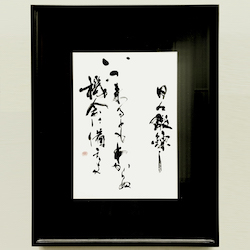 日々鍛錬し
いつ来るとも分からぬ
機会に備えよ